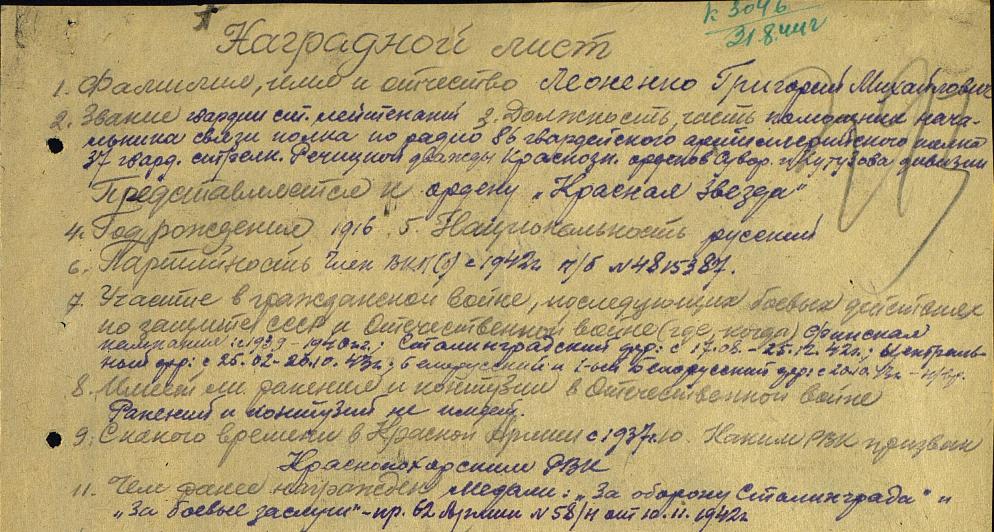 к 3046
31.8.44г
Наградной лист
1. Фамилия, имя и отчество Леоненко Григорий Михайлович
2. Звание гвардии ст. лейтенант 3. Должность, часть помощник нача-
льника связи полка по радио 86 гвардейского артиллерийского полка
37 гвард. стрелк. Речицкой дважды Краснозн. орденов Сувор. и Кутузова дивизии
Представляется к ордену „Красная Звезда“
4. Год рождения 1916 5. Национальность русский
6. Партийность Член ВКП(б) с 1942г п/б №4815387.
7. Участие в гражданской войне, последующих боевых действиях
по защите СССР и Отечественной войне (где, когда) Финская
кампания: 1939-1940г.; Сталинградский фр: с 17.08.-25.12.42г.; Централь-
ный фр: с 25.02-20.10.43г.; Белорусский и 1-ый Белорусский фр: с 20.10.43г.
8. Имеет ли ранения и контузии в Отечественной войне
Ранений и контузий не имеет.
9. С какого времени в Красной Армии с 1937г. 10. Каким РВК призван
Краснояским РВК
11. Чем ранее награжден медали: „За оборону Сталинграда“ и
„За боевые заслуги“-пр. 62 Армии №58/н от 10.11.1942г.